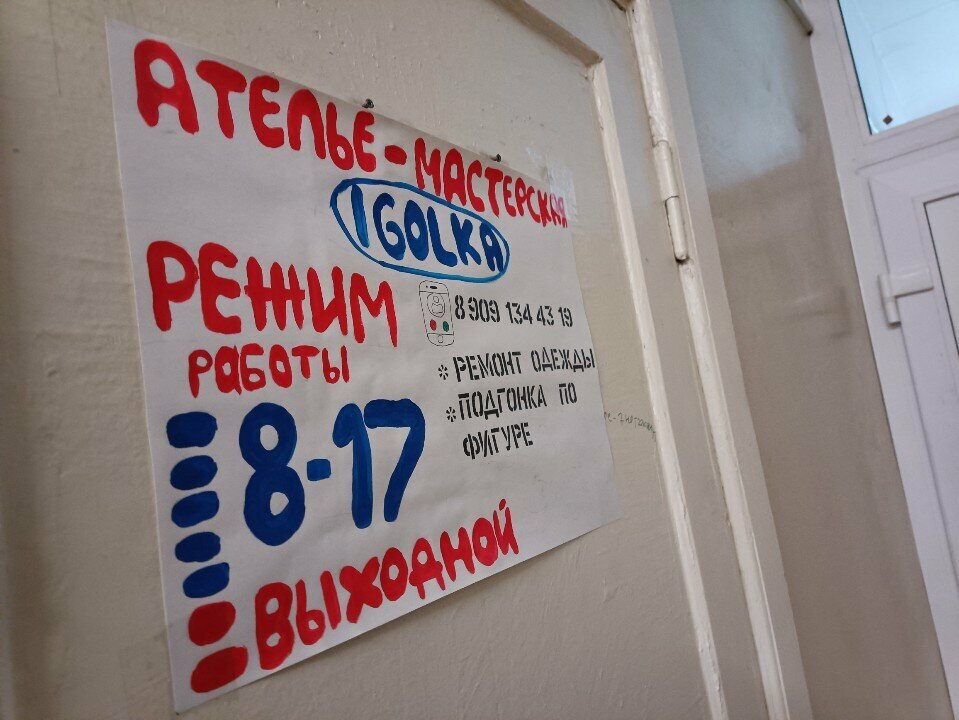 АТЕЛЬЕ-МАСТЕРСКАЯ
IGOLKA
РЕЖИМ
РАБОТЫ
8-17
ВЫХОДНОЙ
8 909 134 43 19
* РЕМОНТ ОДЕЖДЫ
* ПОДГОНКА ПО
ФИГУРЕ